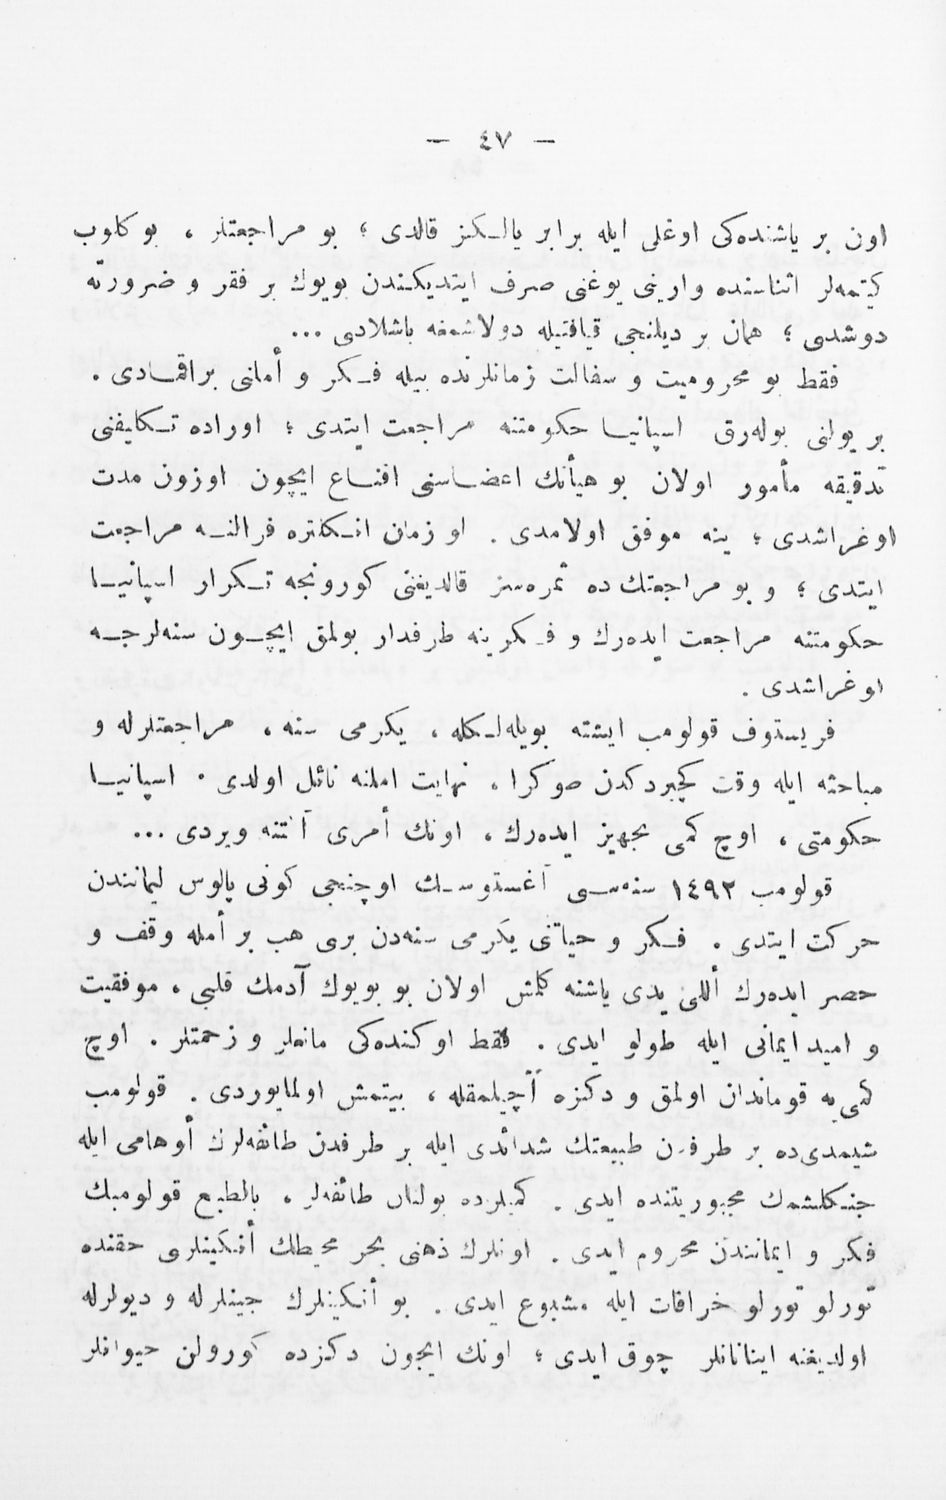 — ٤٧ —
اون بر ياشنده‌كى اوغلى ايله برابر يالـكز قالدى ؛ بو مراجعتلر ، بو كلوب
كيتمه‌لر اثناسنده وارينى يوغنى صرف ايتديكندن بويوك بر فقر و ضرورته
دوشدى ؛ همان بر ديلنجى قيافتيله دولاشمغه باشلادى ...
فقط بو محروميت و سفالت زمانلرنده بيله فـكر و أملنى براقمادى .
بر يولنى بوله‌رق اسپانيـا حكومتنه مراجعت ايتدى ؛ اوراده تـكليفنى
تدقيقه مأمور اولان بو هيأتك اعضـاسنى اقنـاع ايچون اوزون مدت
اوغراشدى ؛ ينه موفق اولامدى . او زمان انـكلتره فرانسـه مراجعت
ايتدى ؛ و بو مراجعتك ده ثمره‌سز قالديغنى كورونجه تـكرار اسپانيـا
حكومتنه مراجعت ايده‌رك و فـكرينه طرفدار بولمق ايچـون سنه‌لرجـه
اوغراشدى .
قريستوف قولومب ايشته بويله‌لـكله ، يكرمى سنه ، مراجعتلرله و
مباحثه ايله وقت كچيردكدن صوكرا ، نهايت املنه نائل اولدى . اسپانيـا
حكومتى ، اوچ كمى تجهيز ايده‌رك ، اونك أمرى آلتنه ويردى ...
قولومب ١٤٩٢ سنه‌سـى آغستوسـك اوچنجى كونى پالوس ليمانندن
حركت ايتدى . فـكر و حياتنى يكرمى سنه‌دن برى هب بر أمله وقف و
حصر ايده‌رك أللى يدى ياشنه كلمش اولان بو بويوك آدمك قلبى ، موفقيت
و اميد ايمانى ايله طولو ايدى . فقط اوكنده‌كى مانعلر و زحمتلر . اوچ
كمى‌يه قوماندان اولمق و دكزه آچيلمقله ، بيتمش اولمايوردى . قولومب
شيمدى‌ده بر طرفدن طبيعتك شدائدى ايله بر طرفدن طائفه‌لرك أوهامى ايله
جنـكلشمك مجبوريتنده ايدى . كميلرده بولنان طائفه‌لر ، بالطبع قولومبك
فكر و ايمانندن محروم ايدى . اونلرك ذهنى بحر محيطك أنـكينلرى حقنده
تورلو تورلو خرافات ايله مشبوع ايدى . بو أنـكينلرك جينلرله و ديولرله
اولديغنه اينانانلر چوق ايدى ؛ اونك ايچون دكزده كورولن حيوانلر